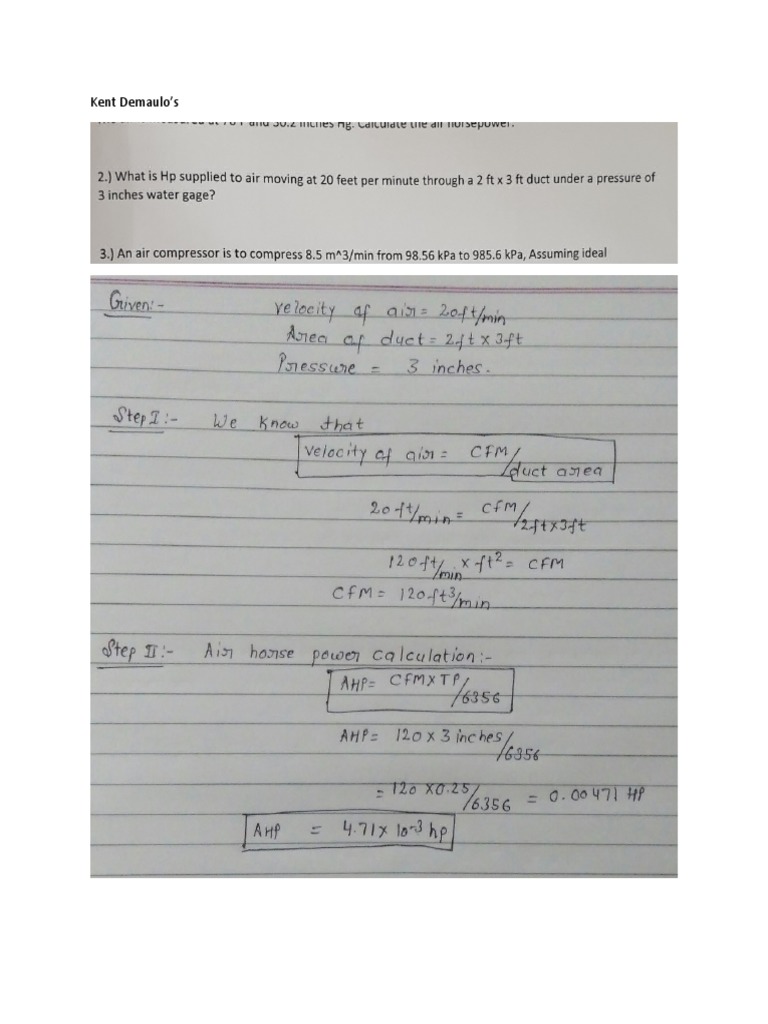 Kent Demaulo's
and 30.2 inches Hg. Calculate the air horsepower.
2.) What is Hp supplied to air moving at 20 feet per minute through a 2 ft x 3 ft duct under a pressure of
3 inches water gage?
3.) An air compressor is to compress 8.5 m^3/min from 98.56 kPa to 985.6 kPa, Assuming ideal
Given:- velocity of air = 20ft/min
Area of duct = 2ft x 3ft
Pressure = 3 inches.
Step I:- We know that
velocity of air = CFM/duct area
20 ft/min = CFM/2ft x 3ft
120 ft/min x ft² = CFM
CFM = 120 ft³/min
Step II:- Air horse power calculation:-
AHP = CFM X TP/6356
AHP = 120 x 3 inches/6356
= 120 x 0.25/6356 = 0.00471 HP
AHP = 4.71 x 10⁻³ hp